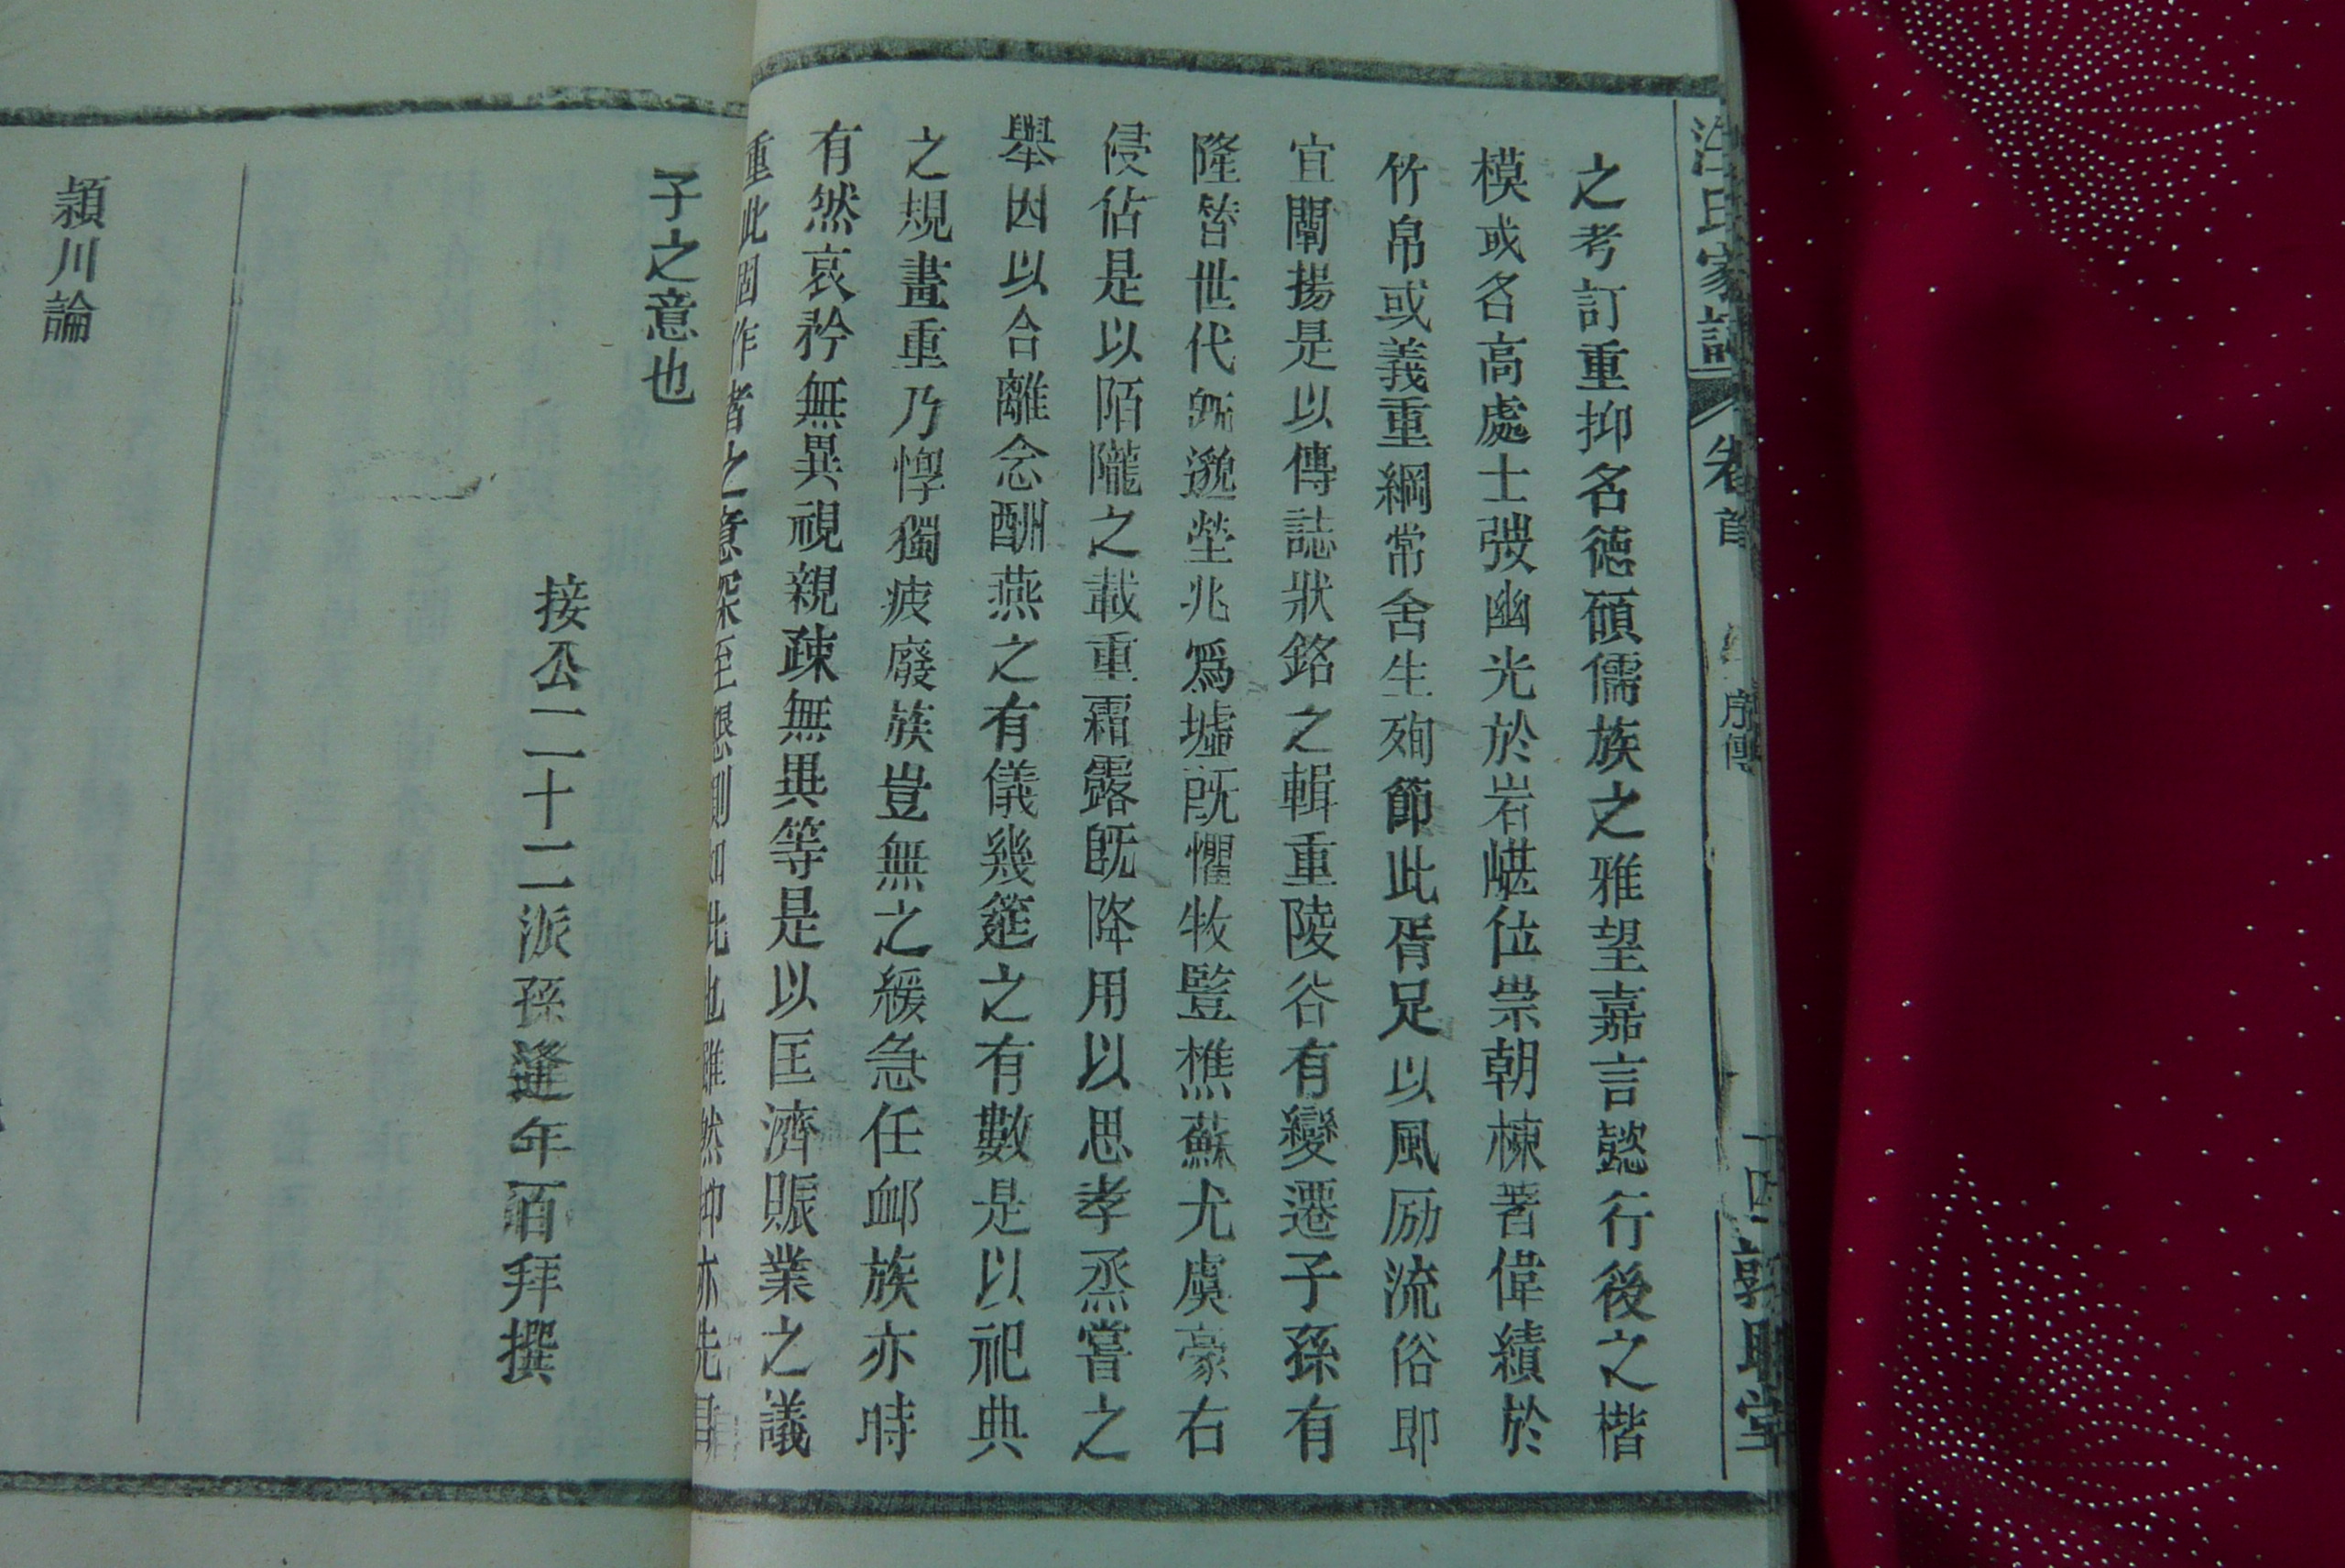 氏家譜 卷首 序傳 十四 敦睦堂
之考訂重抑名德碩儒族之雅望嘉言懿行後之楷
模或名高處士弢幽光於岩㟏位崇朝棟著偉績於
竹帛或義重綱常舍生殉節此胥足以風励流俗即
宜闡揚是以傳誌狀銘之輯重陵谷有變遷子孫有
隆替世代旣邈塋兆爲墟旣懼牧豎樵蘇尤虞豪右
侵佔是以陌隴之載重霜露旣降用以思孝烝嘗之
舉因以合離念酬燕之有儀幾筵之有數是以祀典
之規畫重乃惸獨疲癃族豈無之緩急任卹族亦時
有然哀矜無異視親疎無異等是以匡濟賑業之議
重此固作者之意深至懇惻如此也雖然抑亦先君
子之意也
接公二十二派孫逢年百拜撰
潁川論